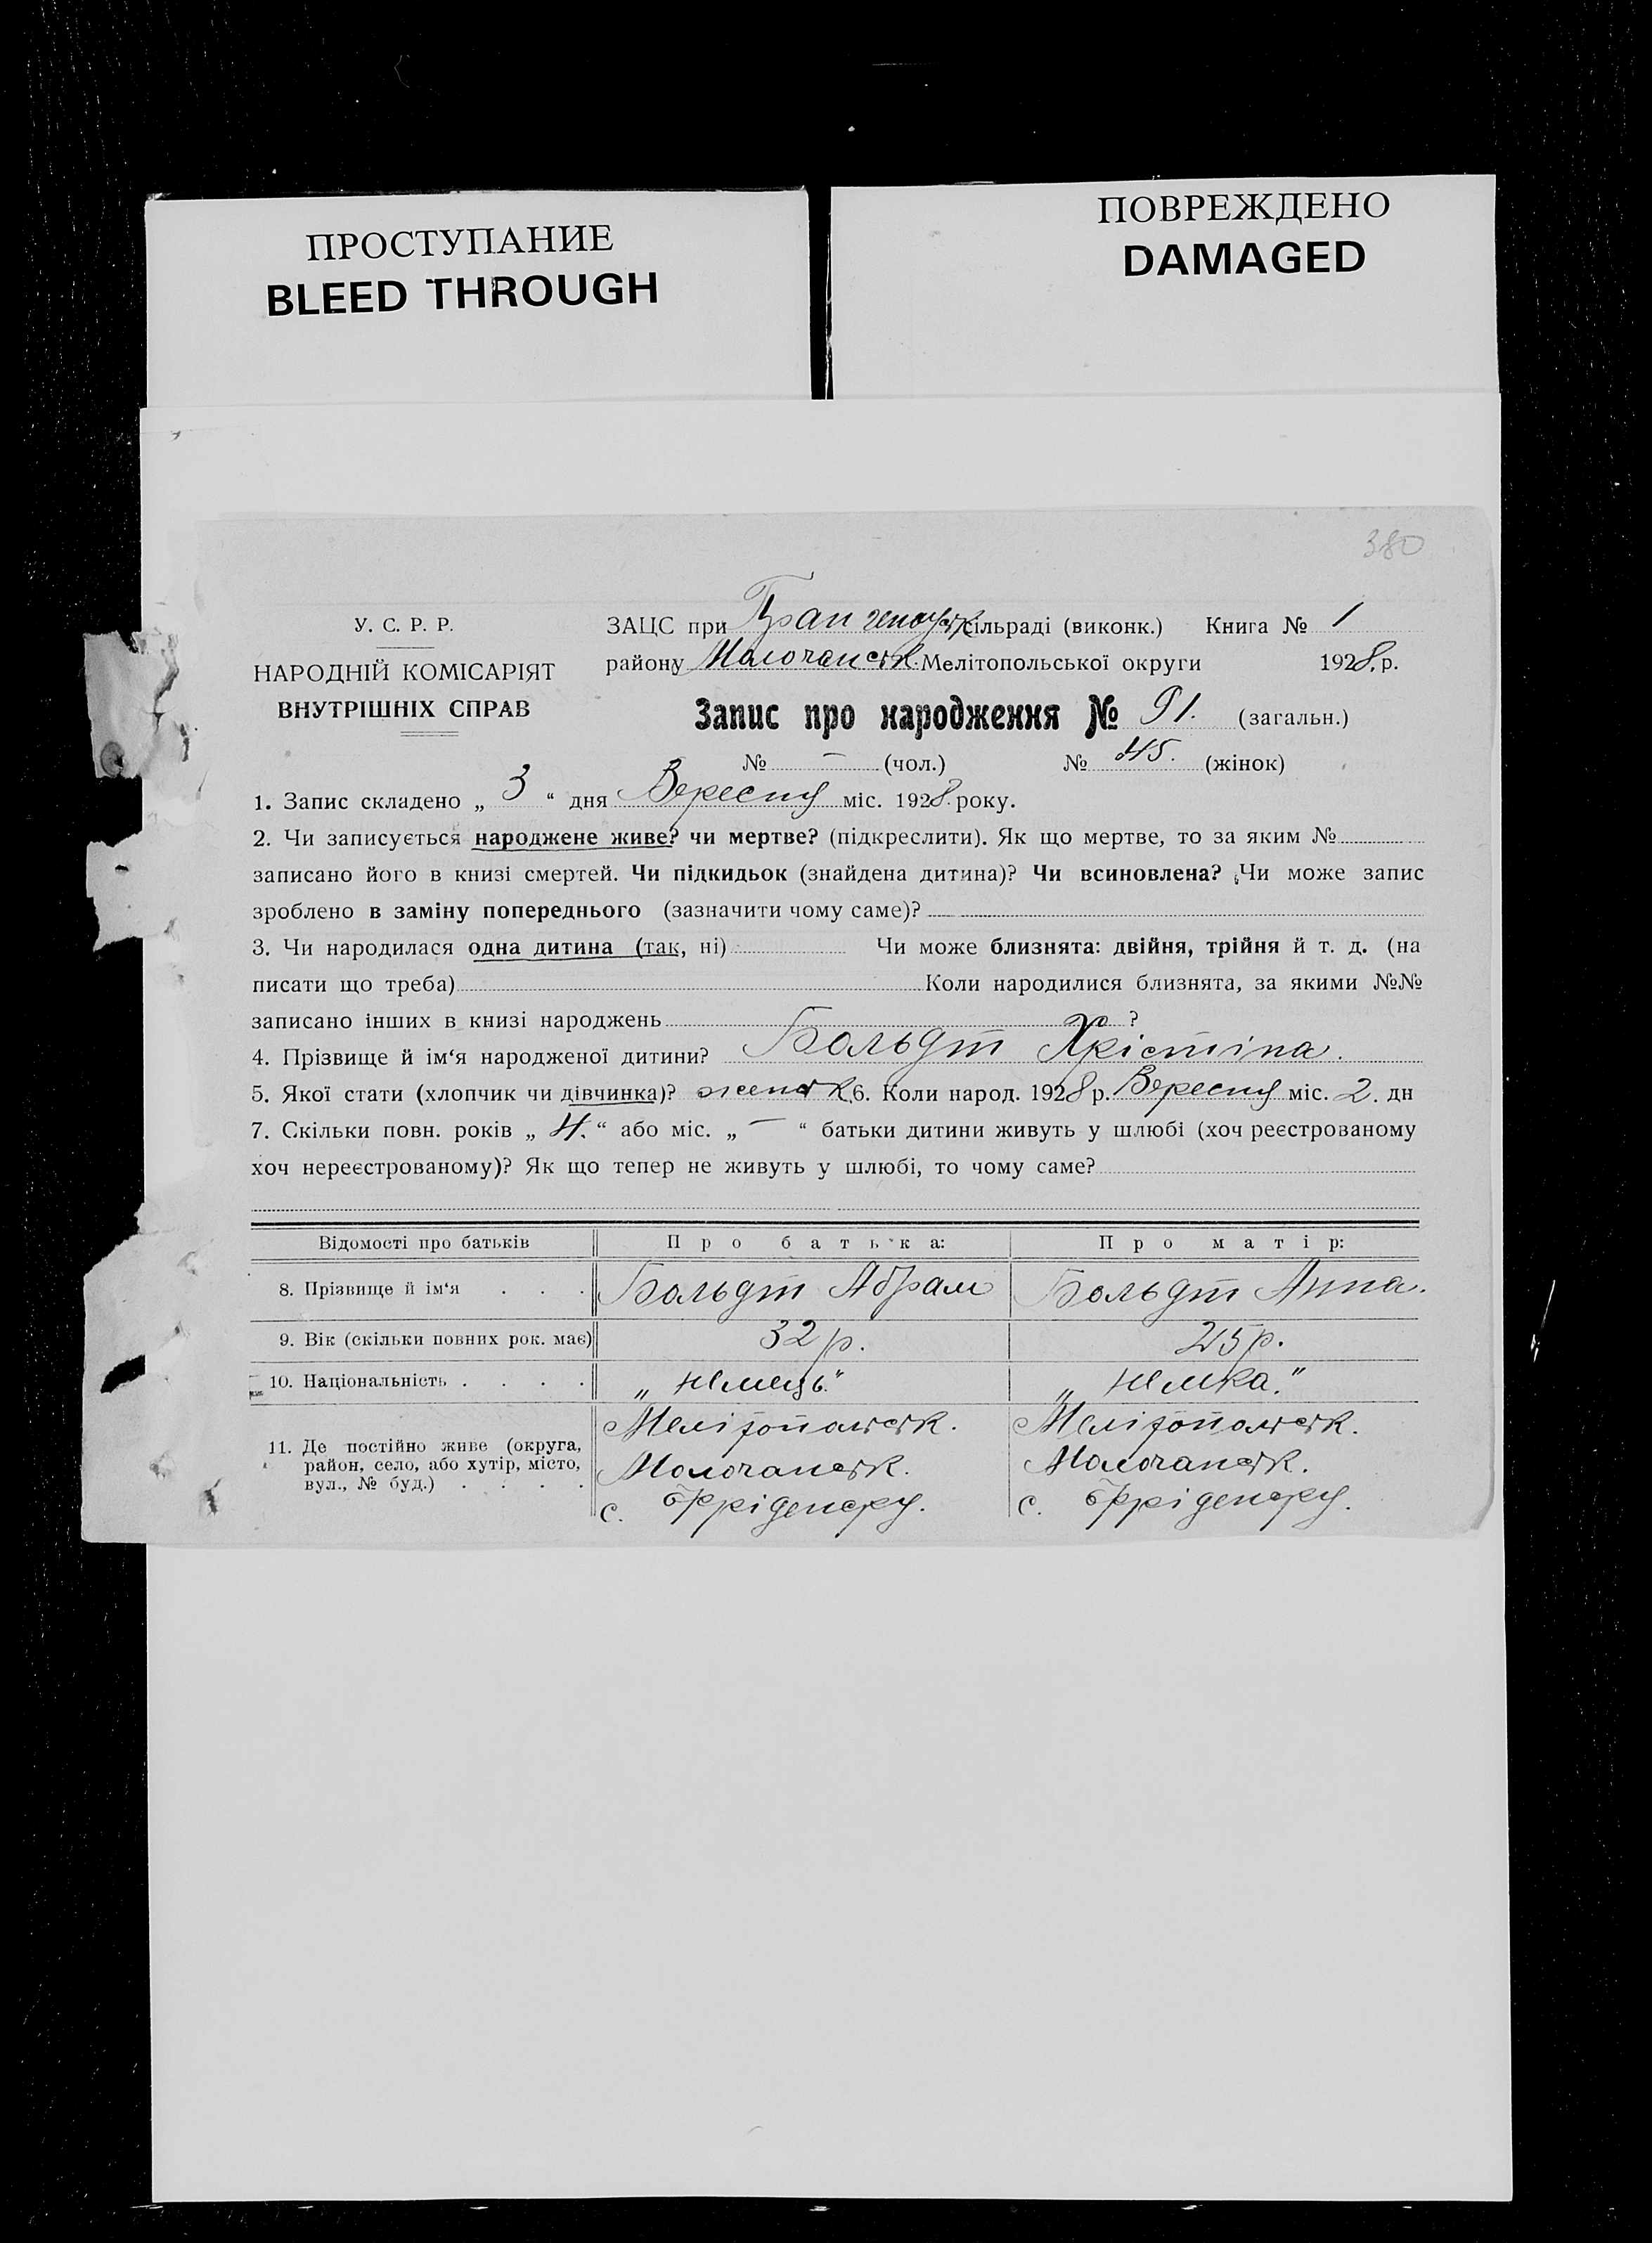 ПРОСТУПАНИЕ
BLEED THROUGH
ПОВРЕЖДЕНО
DAMAGED
380
У. С. Р. Р.
НАРОДНІЙ КОМІСАРІЯТ
ВНУТРІШНІХ СПРАВ
ЗАЦС при сільраді (виконк.) Книга № 1
району Молочанськ. Мелітопольської округи 1928 р.
Запис про народження № 91. (загальн.)
№ — (чол.) № 45. (жінок)
1. Запис складено „ 3 “ дня Вересня міс. 1928. року.
2. Чи записується народжене живе? чи мертве? (підкреслити). Як що мертве, то за яким №
записано його в книзі смертей. Чи підкидьок (знайдена дитина)? Чи всиновлена? Чи може запис
зроблено в заміну попереднього (зазначити чому саме)? —
3. Чи народилася одна дитина (так, ні) Чи може близнята: двійня, трійня й т. д. (на
писати що треба) Коли народилися близнята, за якими №№
записано інших в книзі народжень ?
4. Прізвище й ім‘я народженої дитини? Больдт Хрістіна.
5. Якої стати (хлопчик чи дівчинка)? женськ 6. Коли народ. 1928 р. Вересня міс. 2. дн
7. Скільки повн. років „ 4. “ або міс. „ — “ батьки дитини живуть у шлюбі (хоч реєстрованому
хоч нереєстрованому)? Як що тепер не живуть у шлюбі, то чому саме?
Відомості про батьків Про батька: Про матір:
8. Прізвище й ім‘я . . . Больдт Абрам Больдт Анна.
9. Вік (скільки повних рок. має) 32 р. 25 р.
10. Національність . . . . „ німець.“ „ німка.“
11. Де постійно живе (округа, район, село, або хутір, місто, вул., № буд.) . . . .
Мелітопольськ. Мелітопольськ.
Молочанськ. Молочанськ.
с. Фріденсру. с. Фріденсру.